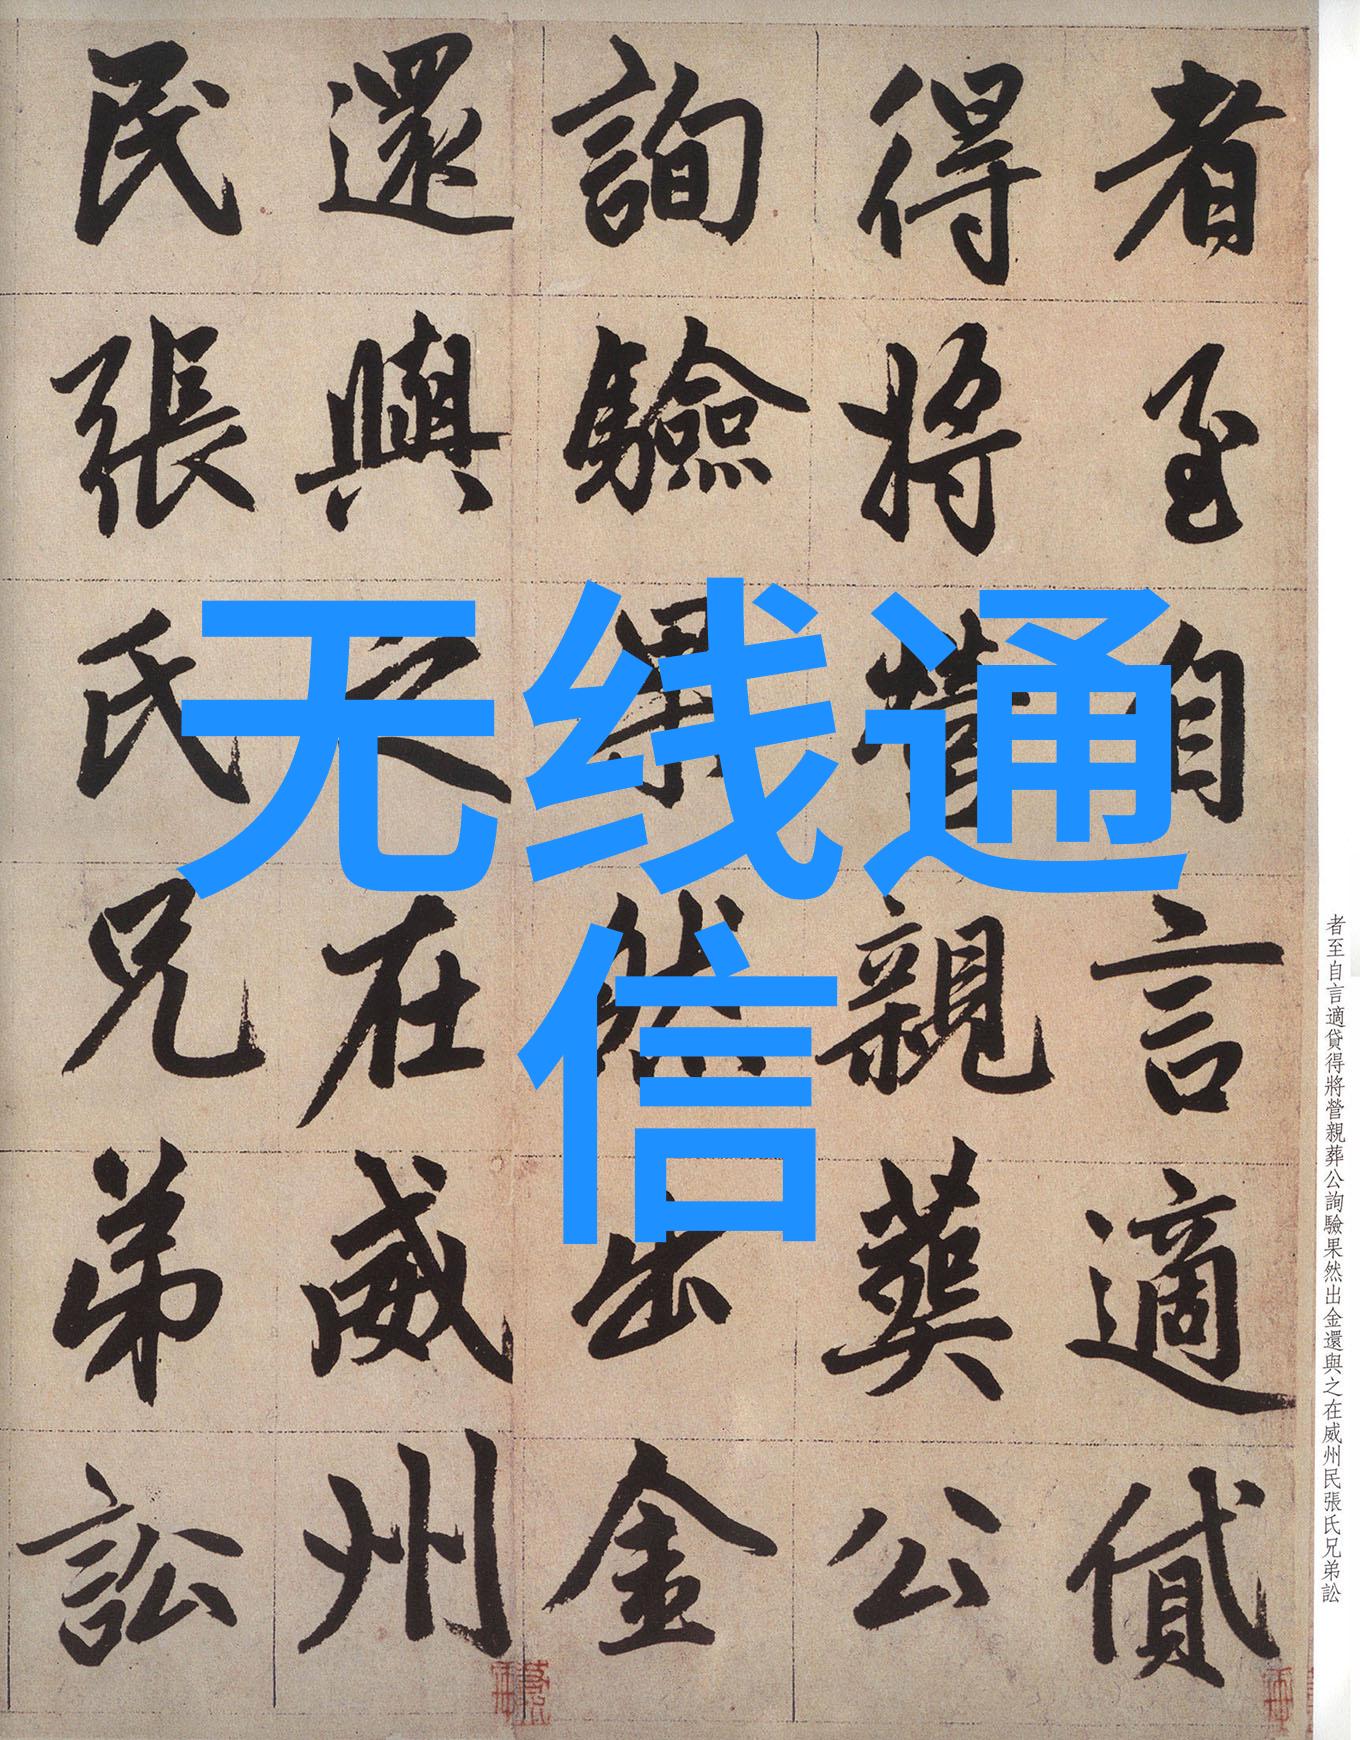 无线通
信
者至自言適貸
得將營親葬公
詢驗果然出金
還與之在威州
民張氏兄弟訟
者至自言適貸得將營親葬公詢驗果然出金還與之在威州民張氏兄弟訟